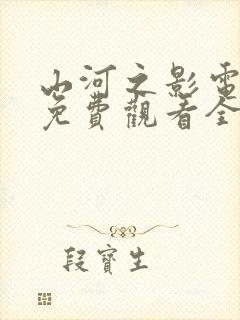 山河之影電
免費觀看全
段寶生